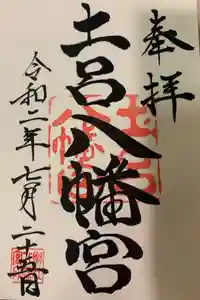 奉拝
土呂八幡宮
令和二年七月二十五日